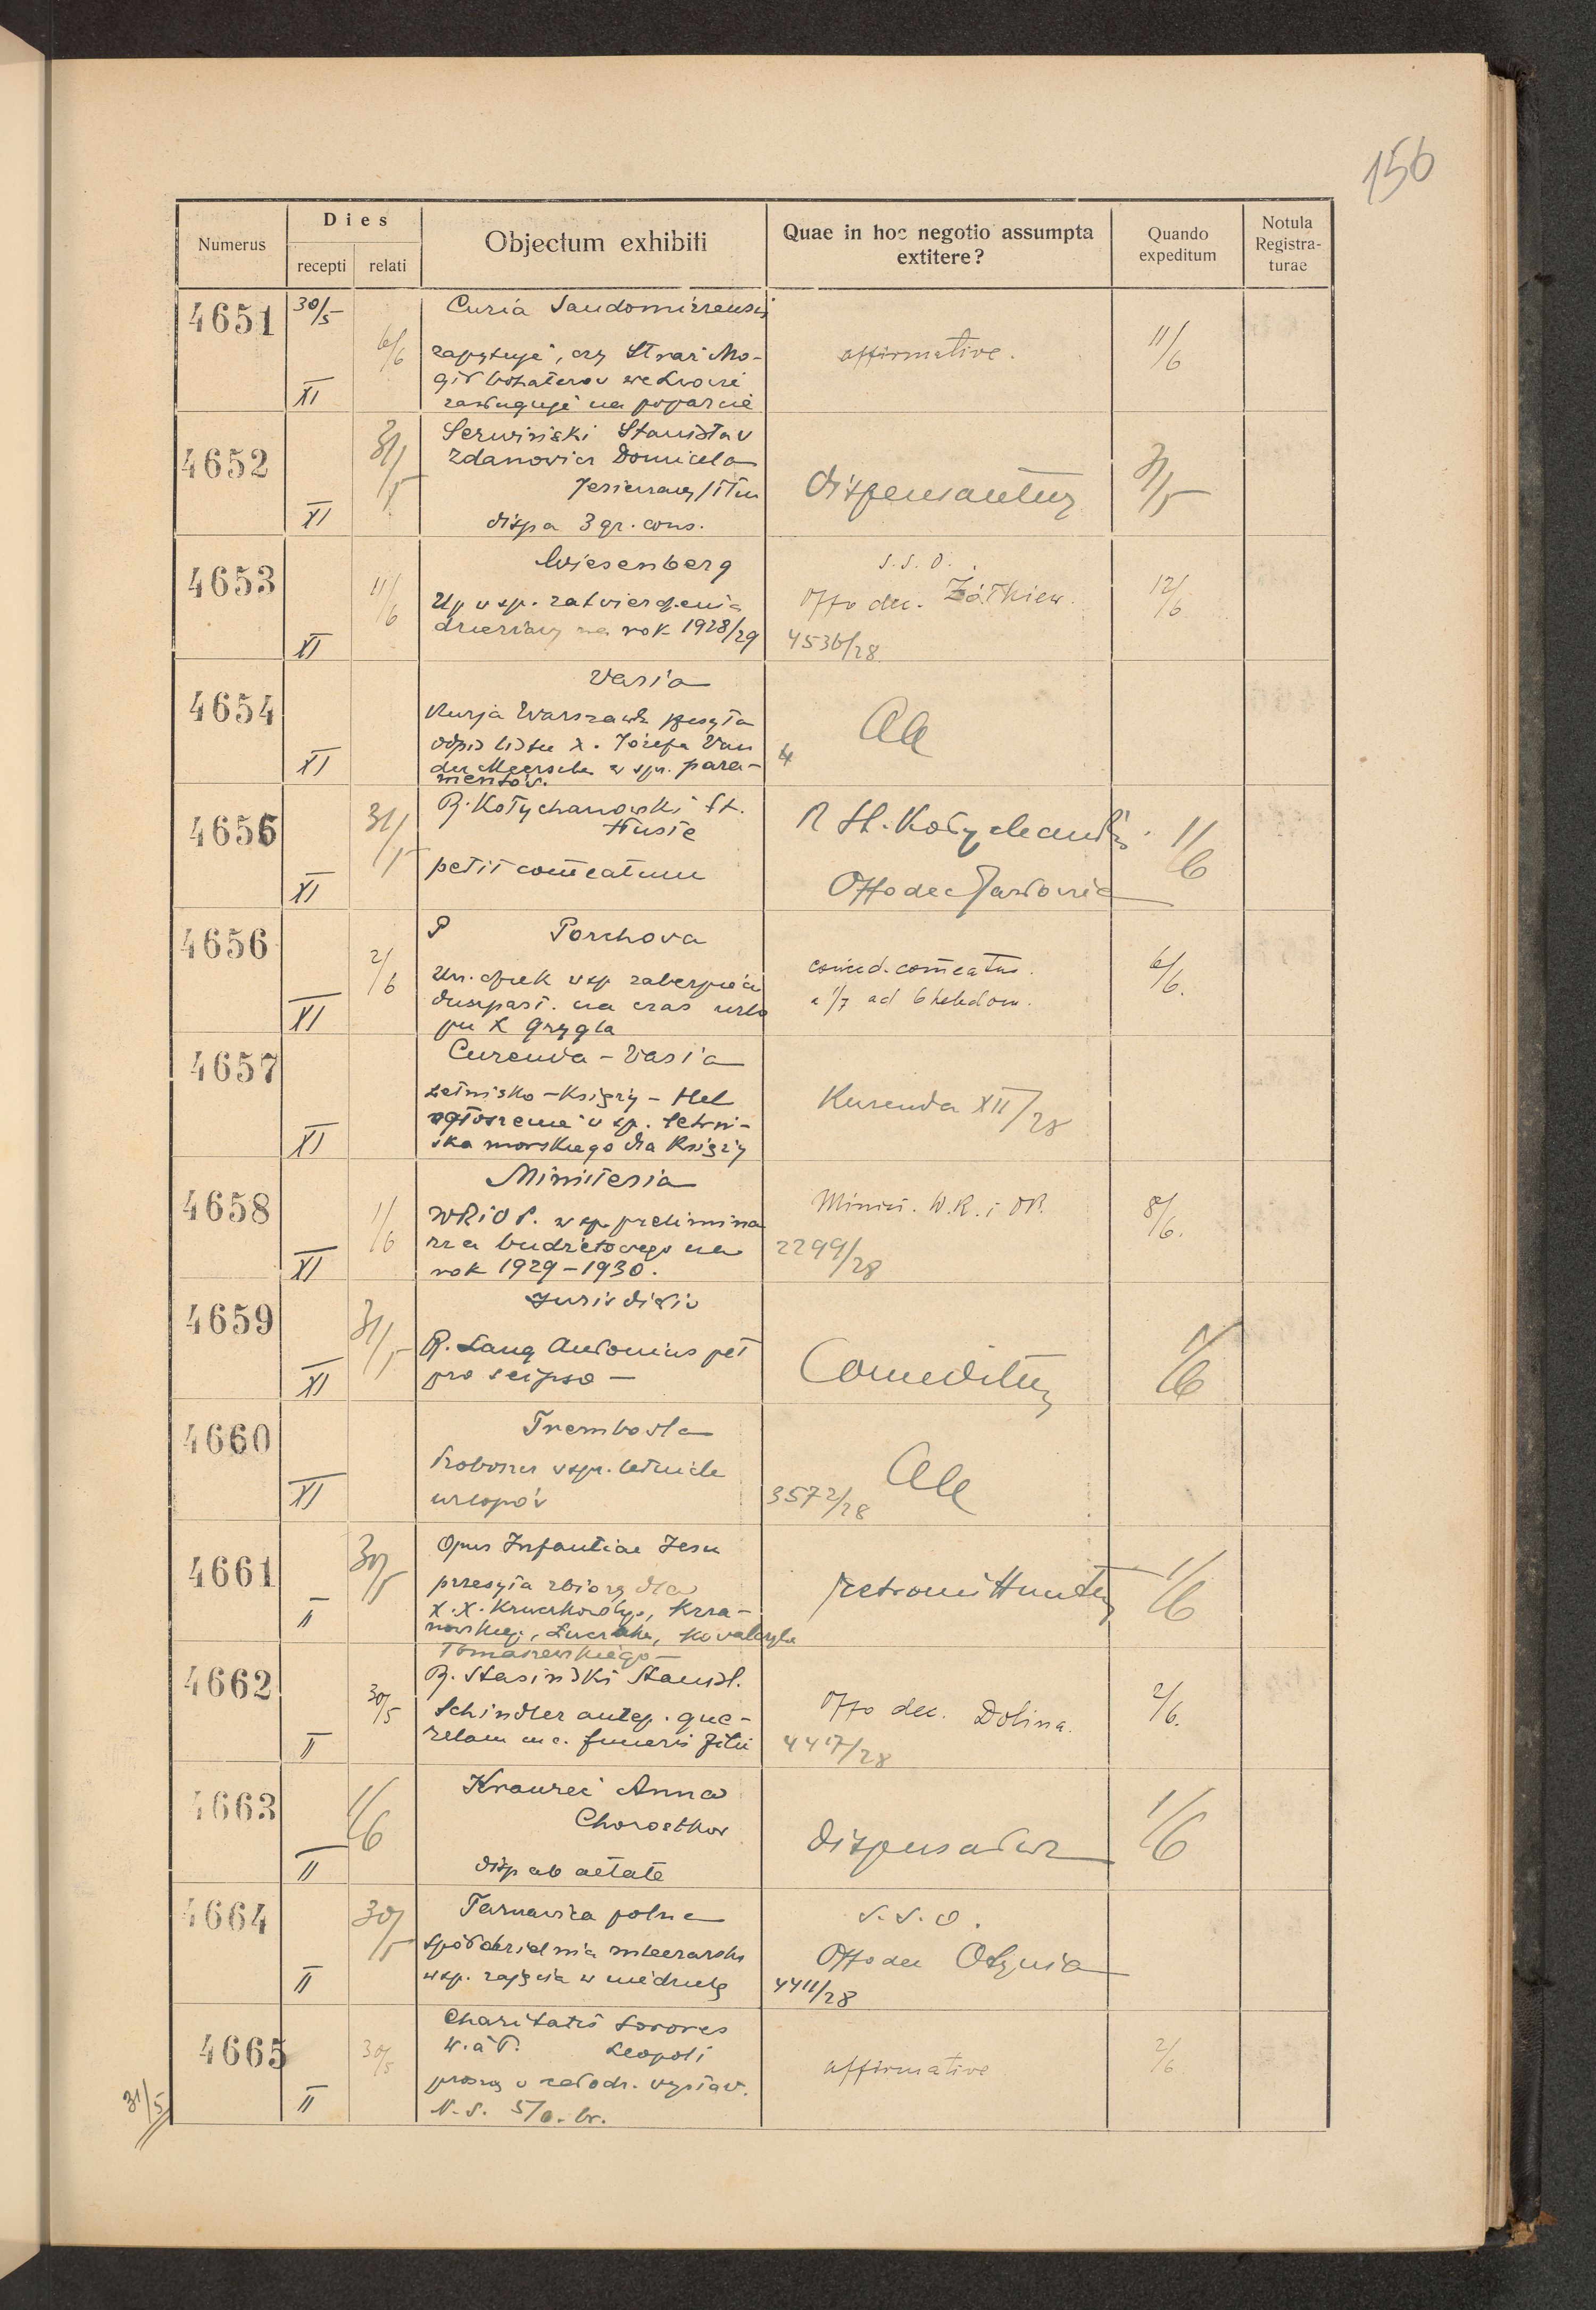 156
Numerus
Dies
recepti relati
Objectum exhibiti
Quae in hoc negotio assumpta
extitere?
Quando
expeditum
Notula
Registra-
turae
4651 30/5 XI 6/6
Curia Sandomiriensis
zapytuje, czy Straż Mo-
gił bohaterów we Lwowie
zasługuje na poparcie
affirmative. 11/6
4652 XI 31/5
Serwiński Stanisław
Zdanowicz Domicela
dispa 3 gr. cons.
Dispensantur 31/5
4653 XI 11/6
Wiesenberg
Up w sp. zatwierdzenia
dzierżawy na rok 1928/29
s. s. o.
Offo dec. Żółkiew.
4536/28
12/6
4654 XI
Varia
Kurja Warszawsk przesyła
odpis listu X. Józefa Van
der Meersche w spr. para-
mentów.
4
Aa
4655 XI 31/5
R. Kołychanowski St.
Tłuste
petit comeatum
R St. Kołychanowski
Offo dec Jazłowiec
1/6
4656 XI 2/6
P Porchova
Urz. opiek w sp zabezpiecz
duszpast. na czas urlo
pu X Grygla
conced. comeatus.
a 1/7 ad 6 hebdom.
6/6.
4657 XI
Curenda - Varia
Letnisko - Księży - Hel
ogłoszenie w sp. letni-
ska morskiego dla Księży
Kurenda XII/28
4658 XI 1/6
Ministeria
WRiOP. w sp. prelimina
rza budżetowego na
rok 1929-1930.
Minist. W.R. i OP.
2299/28
8/6.
4659 XI 31/5
Jurisdictio
R. Lang Antonius pet
pro seipso -
Conceditur 1/6
4660 XI
Trembowla
Proboszcz w spr. letnich
urlopów
3572/28
Aa
4661 II 30/5
Opus Infantiae Jesu
przesyła zbiorg dla
X.X. Kruczkowskiego, Krza-
nowskieg., Łuczaka, Kowalczyka
Tomaszewskiego -
retromittuntur 1/6
4662 II 30/5
R. Stasiński Stanisl.
Schindler antep. que-
relam in c. funeris filii
Offo dec. Dolina.
4417/28
2/6.
4663 II 1/6
Krauzei Anna
Chorostkow
disp ab aetate
Dispensatur 1/6
4664 II 30/5
Tarnawica polna
Spółdzielnia mleczarska
w sp. zajęcia w niedzielę
s. s. o.
Offo dec Otynia
4411/28
4665 II 30/5
Charitatis Sorores
W. à P. Leopoli
proszą o całodz. wystaw.
N. S. 5/6. br.
affirmative 2/6
31/5